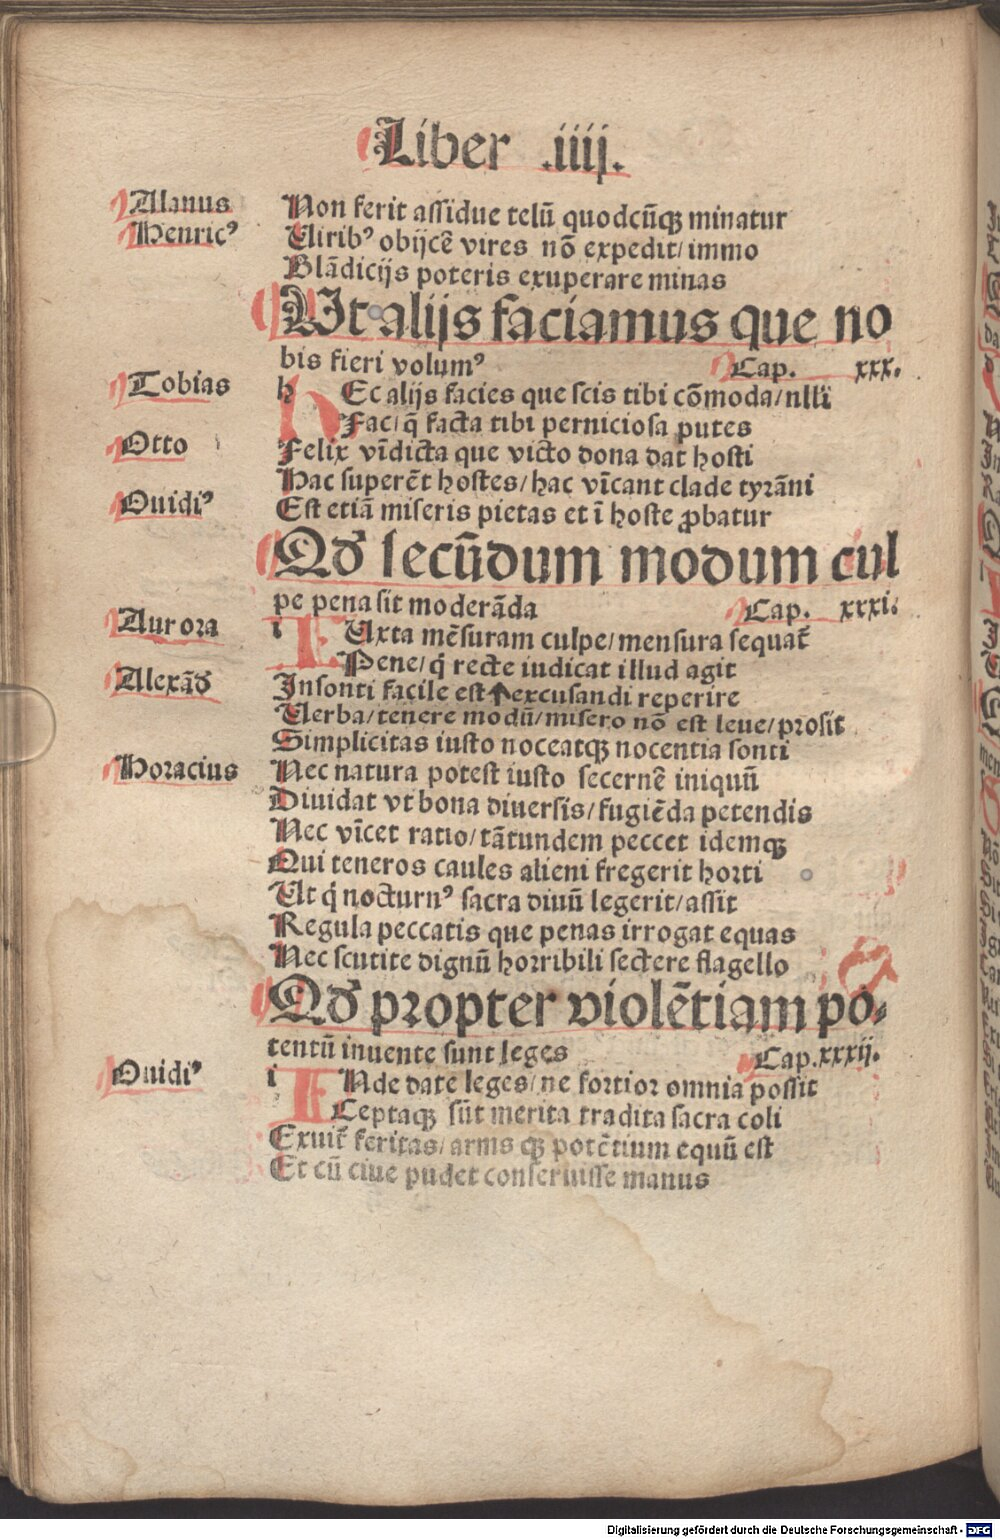 Liber .iiij.
Alanus Non ferit assidue telū quodcūqꝫ minatur
Henricꝰ Uiribꝰ obijcē vires nō expedit/ immo
Blādicijs poteris exuperare minas
Ut alijs faciamus que no
bis fieri volumꝰ Cap. xxx.
Tobias h Ec alijs facies que scis tibi cōmoda/ nllī
Fac/ q̄ facta tibi perniciosa putes
Otto Felix vīdicta que victo dona dat hosti
Hac superēt hostes/ hac vīcant clade tyrāni
Ouidiꝰ Est etiā miseris pietas et ī hoste ꝓbatur
Qd secūdum modum cul
pe pena sit moderāda Cap. xxxi.
Aurora i Uxta mēsuram culpe/ mensura sequat̄
Pene/ q̄ recte iudicat illud agit
Alexād Insonti facile est excusandi reperire
Uerba/ tenere modū/ misero nō est leue/ prosit
Simplicitas iusto noceatqꝫ nocentia sonti
Horacius Nec natura potest iusto secernē iniquū
Diuidat vt bona diuersis/ fugiēda petendis
Nec vīcet ratio/ tātundem peccet idemqꝫ
Qui teneros caules alieni fregerit horti
Ut q̄ nocturnꝰ sacra diuū legerit/ assit
Regula peccatis que penas irrogat equas
Nec scutite dignū horribili sectere flagello
Qd propter violētiam po⸗
tentū inuente sunt leges Cap. xxxij.
Ouidiꝰ i Nde date leges/ ne fortior omnia possit
Ceptaqꝫ sūt merita tradita sacra coli
Exuit̄ feritas/ arms qꝫ potētium equū est
Et cū ciue pudet conseruisse manus
Digitalisierung gefördert durch die Deutsche Forschungsgemeinschaft - DFG